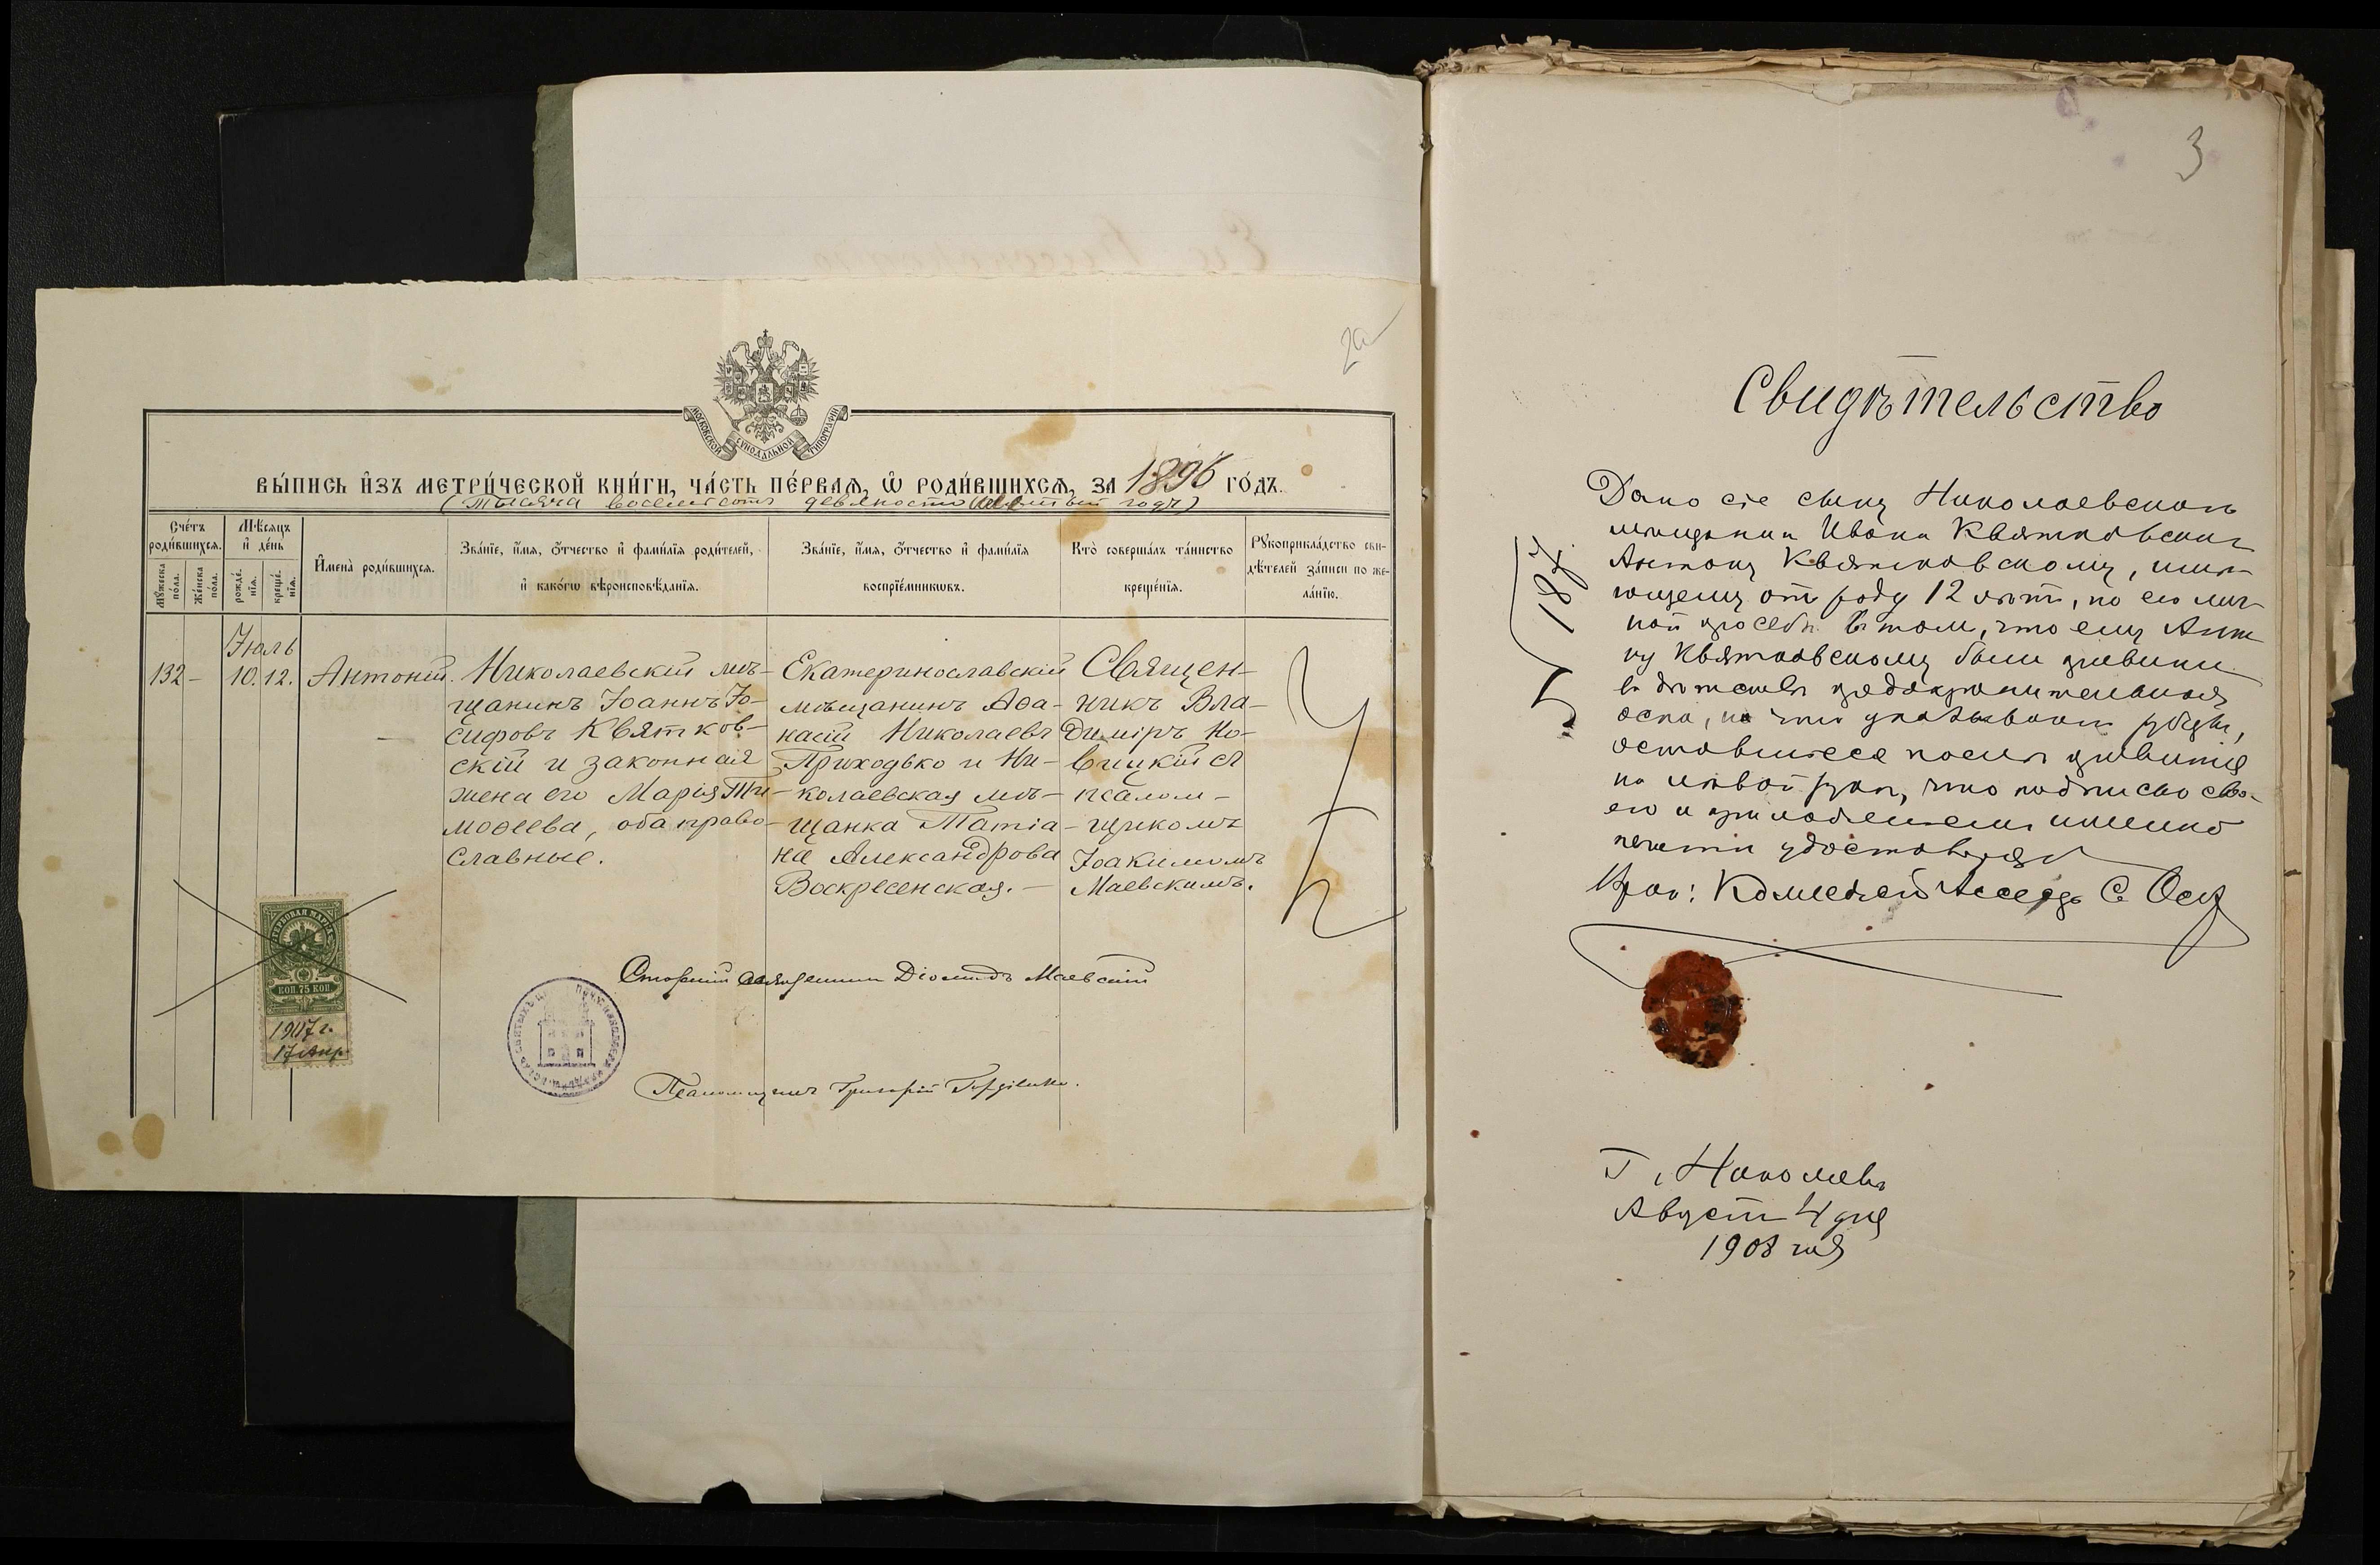 2а
МОСКОВСКОЙ СѴНОДАЛЬНОЙ ТИПОГРАФІИ
ВЫ́ПИСЬ И҆ЗЪ МЕТРИ́ЧЕСКОЙ КНИ́ГИ, ЧА́СТЬ ПЕ́РВАѦ, Ѡ҆ РОДИ́ВШИХСѦ, ЗА 1896 ГО́ДЪ.
(Тысяча восемьсотъ девяносто шестый годъ)
Сче́тъ роди́вшихсѧ.
Мꙋ́жеска по́ла.
Же́нска по́ла.
Мѣ́сѧцъ и҆ де́нь
рожде́нїѧ.
креще́нїѧ.
И҆мена̀ роди́вшихсѧ.
Зва́нїе, и҆́мѧ, ѻ҆́тчество и҆ фами́лїѧ роди́телей,
и҆ како́гѡ вѣроисповѣ́данїѧ.
Зва́нїе, и҆́мѧ, ѻ҆́тчество и҆ фами́лїѧ
воспрїе́мникѡвъ.
Кто̀ соверша́лъ та́инство
креще́нїѧ.
Рꙋкоприкла́дство сви-
дѣ́телей за́писи по же-
ла́нїю.
Іюль
132
–
10.
12.
Антоній.
Николаевскій мѣ-
щанинъ Іоаннъ Іо-
сифовъ Квятков-
скій и законная
жена его Марія Ти-
моѳеева, оба право-
славные.
Екатеринославскій
мѣщанинъ Аѳа-
насій Николаевъ
Приходько и Ни-
колаевская мѣ-
щанка Татіа-
на Александрова
Воскресенская. –
Священ-
никъ Вла-
диміръ Но-
вицкій съ
псалом-
щикомъ
Іоакимомъ
Маевскимъ.
ГЕРБОВАЯ МАРКА
КОП. 75 КОП.
1907 г.
17 Апр.
Старшій священникъ Діомидъ Маевскій
Псаломщикъ Григорій
3
Свидѣтельство
Дано сіе сыну Николаевскаго
мѣщанина Ивана Квятковскаго
Антону Квятковскому, имѣ-
ющему отъ роду 12 лѣтъ, по его лич-
ной просьбѣ въ томъ, что ему Анто-
ну Квятковскому была привита
въ дѣтствѣ предохранительная
оспа, на что указываютъ рубцы,
оставшіеся послѣ привитія
на лѣвой рукѣ, что подписью сво-
ею и приложеніемъ именной
печати удостовѣряю
187
Врачъ: Коллежскій Ассесоръ С.
Г. Николаевъ
Августъ 4 дня
1908 года